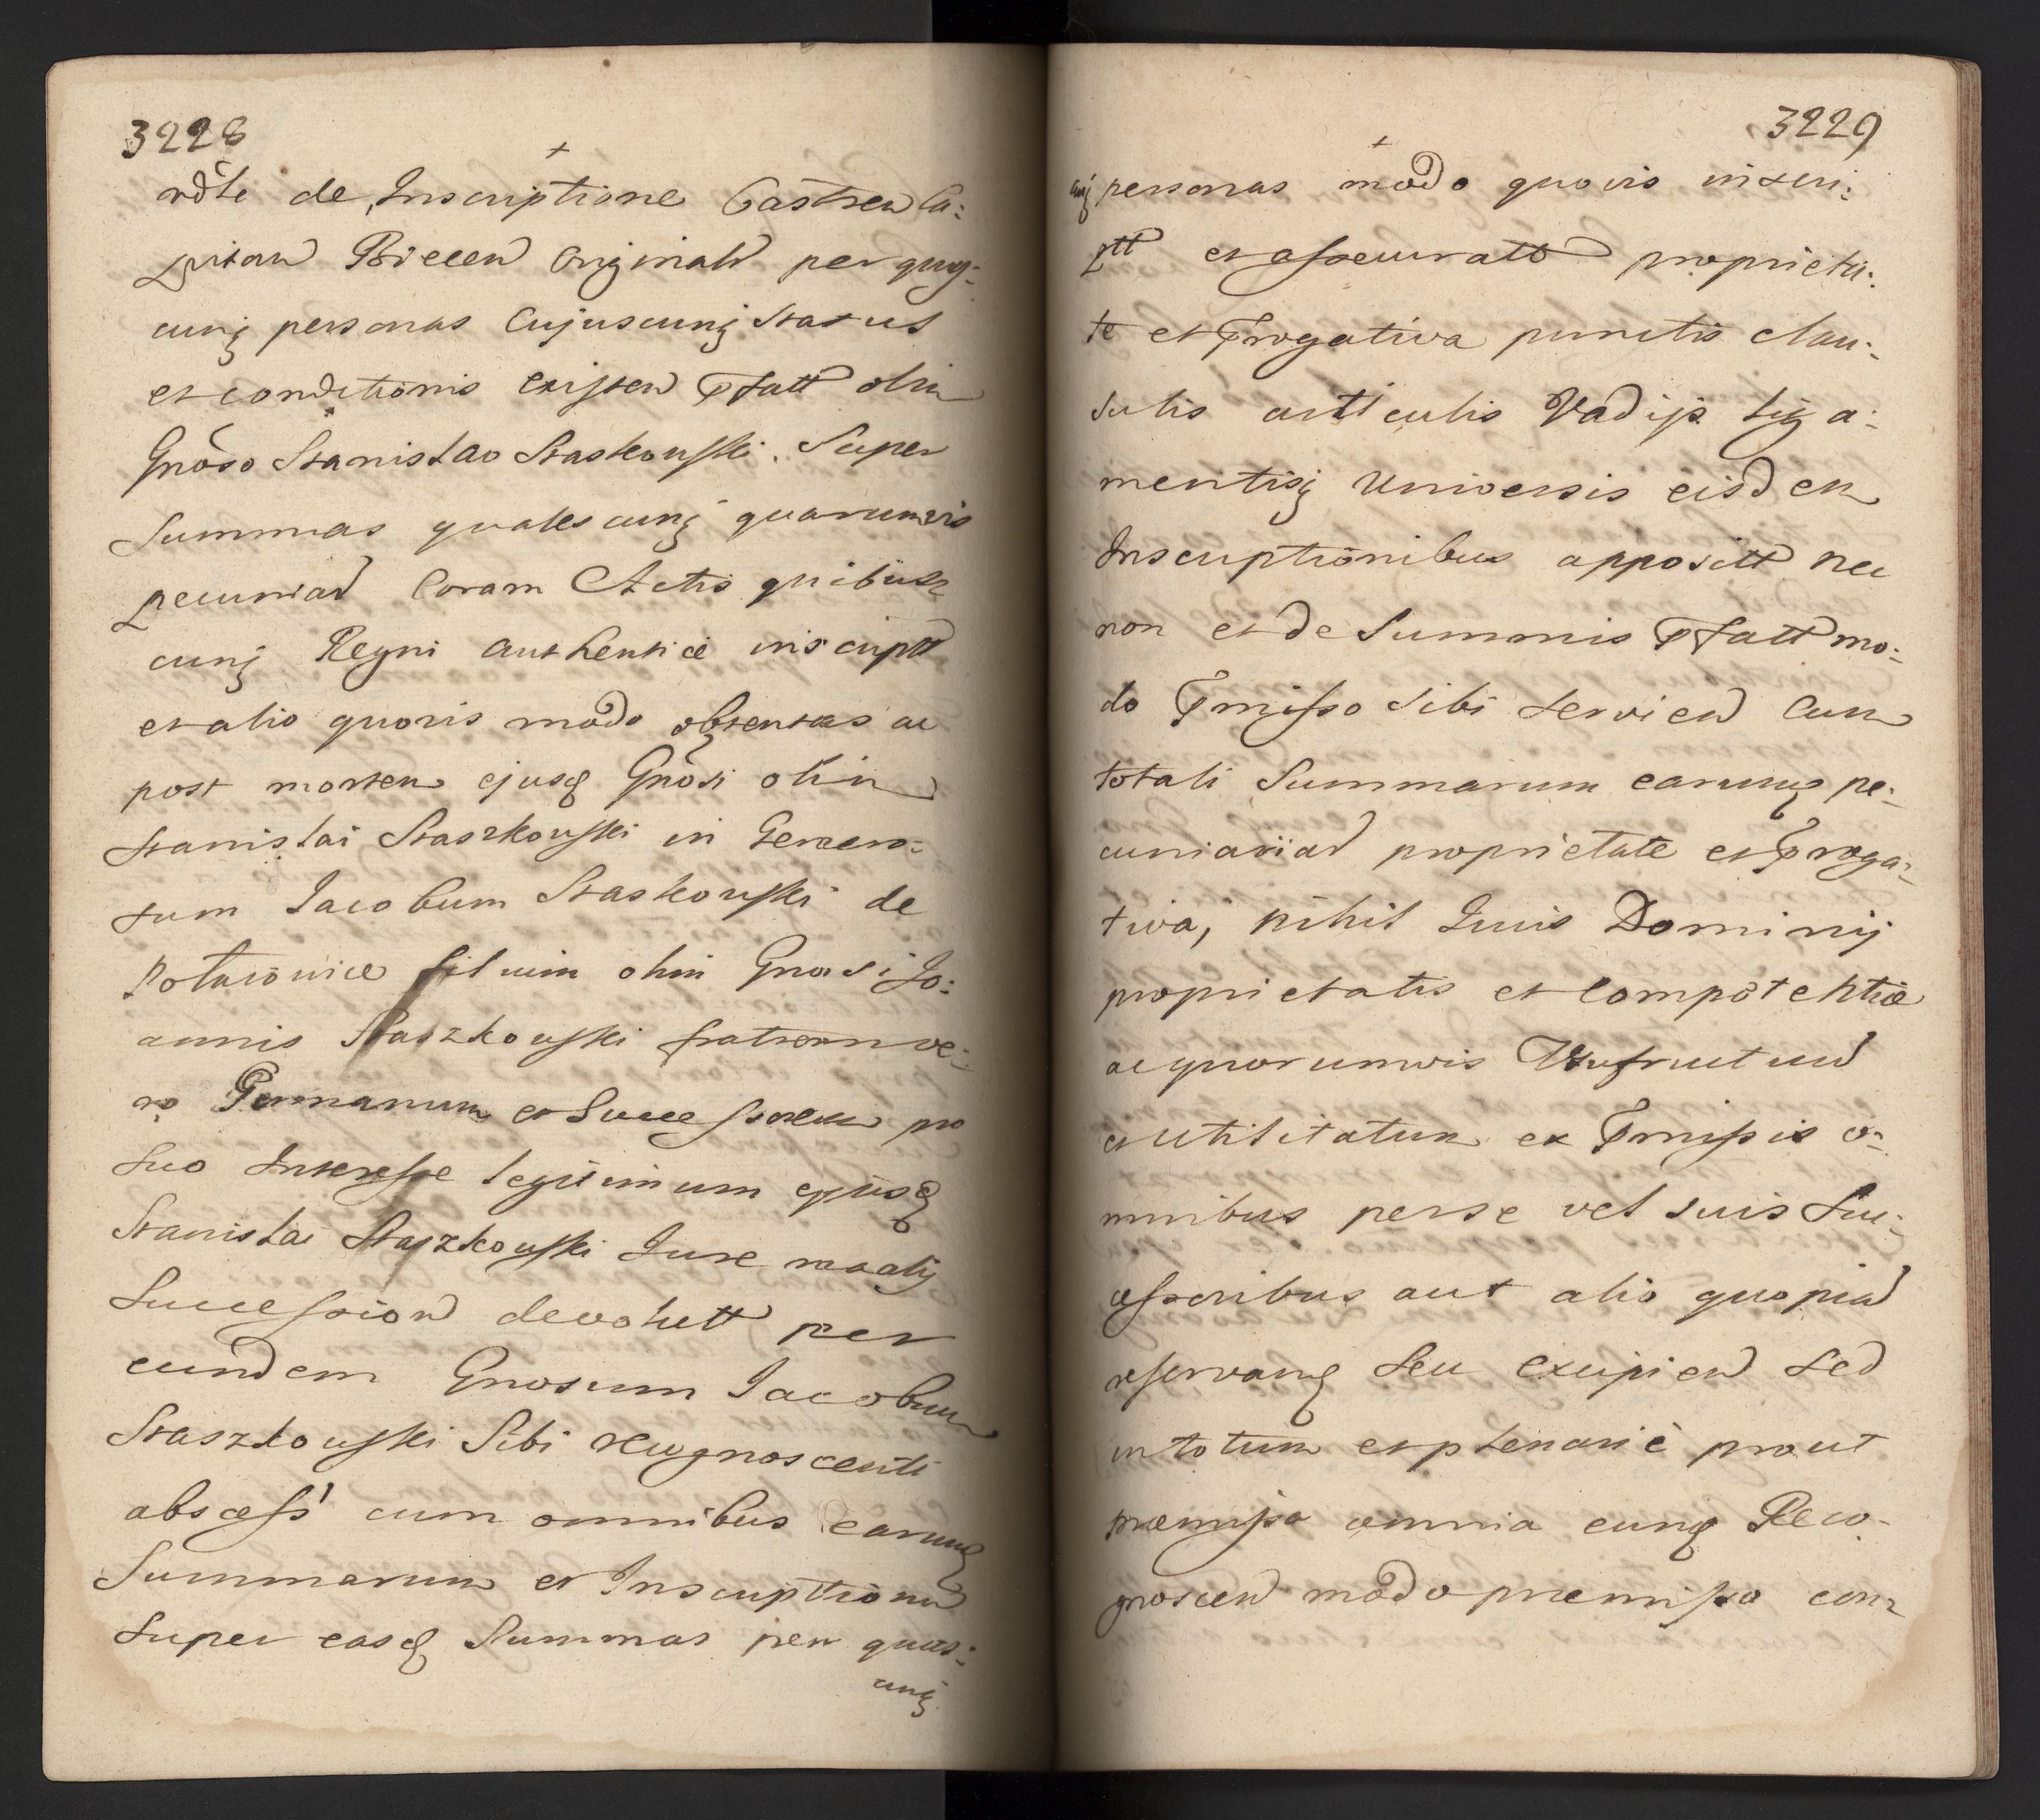 3228
de Inscriptione Castren Ca:
pitan Biecen Originali per quos:
cunq personas Cujuscunq status
et conditionis existen Pfatt olim
Gnoso Stanislao Staskowski. Super
Summas qualescunq quarumvis
pecuniar Coram Actis quibus
cunq Regni authentice inscript
et alio quovis modo obtentas ac
post mortem ejusd Gnosi olim
Stanislai Staszkowski in Genero:
sum Jacobum Staskowski de
Potarowice filium olim Gnosi Jo:
annis Staszkowski fratrem ve:
ro Germanum et Successorem pro
suo Interesse legitimum ejusd
Stanislai Staszkowski Jure
Succession devolutt per
eundem Gnosum Jacobum
Staszkowski Sibi recognoscenti
cum omnibus earumd
Summarum et Inscription
Super easd Summas per quas:
cunq
3229
cunq personas modo quovis inscri:
ptt et assecuratt proprieta:
te et Prrogativa punctis clau:
sulis articulis Vadijs liga:
mentisq Universis eisdem
Inscriptionibus appositt nec
non et de Summis Pfatt mo:
do Prmisso Sibi servien Cum
totali Summarum earumd pe:
cuniariar proprietate et Prroga:
tiva, nihil Juris Dominij
proprietatis et Competentiæ
ac quorumvis Usufructuu
et utilitatum ex Prmissis o:
mnibus per se vel suis Suc:
cessoribus aut alio quopia
reservand Seu excipien Sed
in totum et plenarie prout
præmissa omnia eund Reco-
gnoscen modo præmisso con: